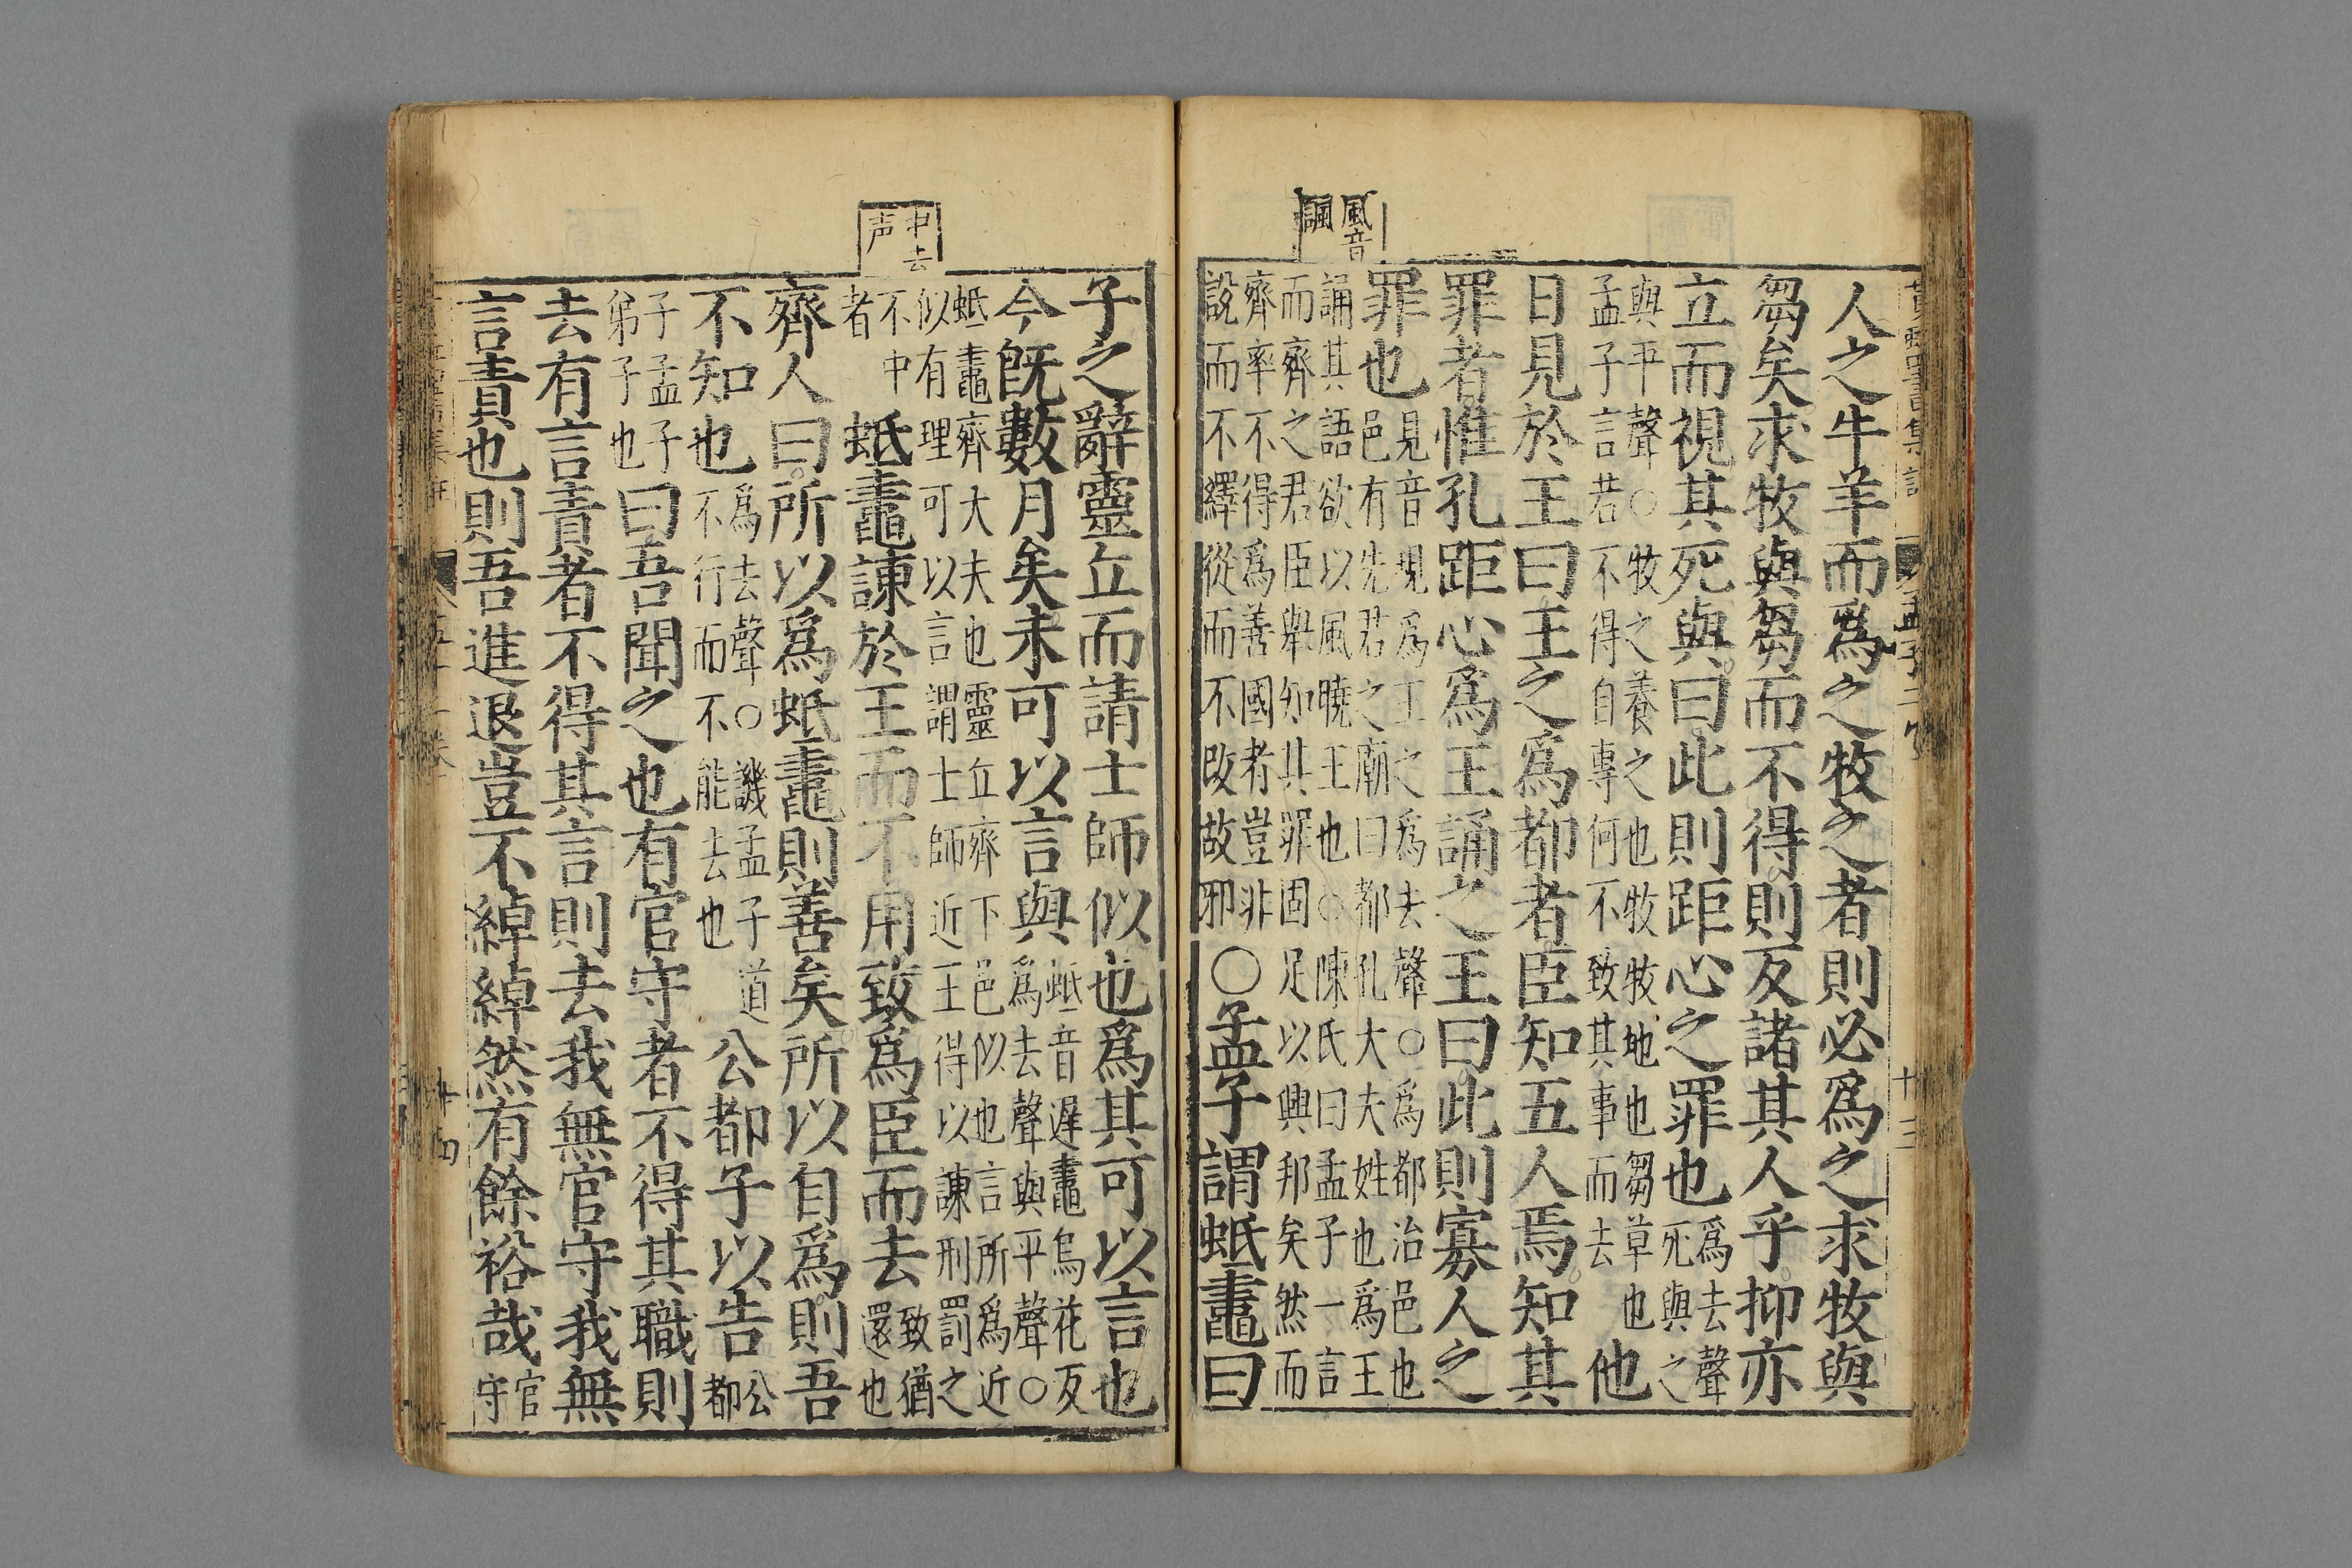 人之牛羊而爲之牧之者則必爲之求牧與
芻矣求牧與芻而不得則反諸其人乎抑亦
立而視其死與曰此則距心之罪也爲去聲死與之
與平聲○牧之養之也牧牧地也芻草也孟子言若不得自專何不致其事而去他
日見於王曰王之爲都者臣知五人焉知其
罪者惟孔距心爲王誦之王曰此則寡人之
罪也見音現爲王之爲去聲○爲都治邑也邑有先君之廟曰都孔大夫姓也爲王
誦其語欲以風曉王也○陳氏曰孟子一言而齊之君臣舉知其罪固足以興邦矣然而
齊率不得爲善國者豈非說而不繹從而不改故邪○孟子謂蚳鼃曰
風音諷
子之辭靈丘而請士師似也爲其可以言也
今旣數月矣未可以言與蚳音遲鼃烏花反爲去聲與平聲○
蚳鼃齊大夫也靈丘齊下邑似也言所爲近似有理可以言謂士師近王得以諫刑罰之
不中者蚳鼃諫於王而不用致爲臣而去致猶還也
中去声
齊人曰所以爲蚳鼃則善矣所以自爲則吾
不知也爲去聲○譏孟子道不行而不能去也公都子以告公都
子孟子弟子也曰吾聞之也有官守者不得其職則
去有言責者不得其言則去我無官守我無
言責也則吾進退豈不綽綽然有餘裕哉官守